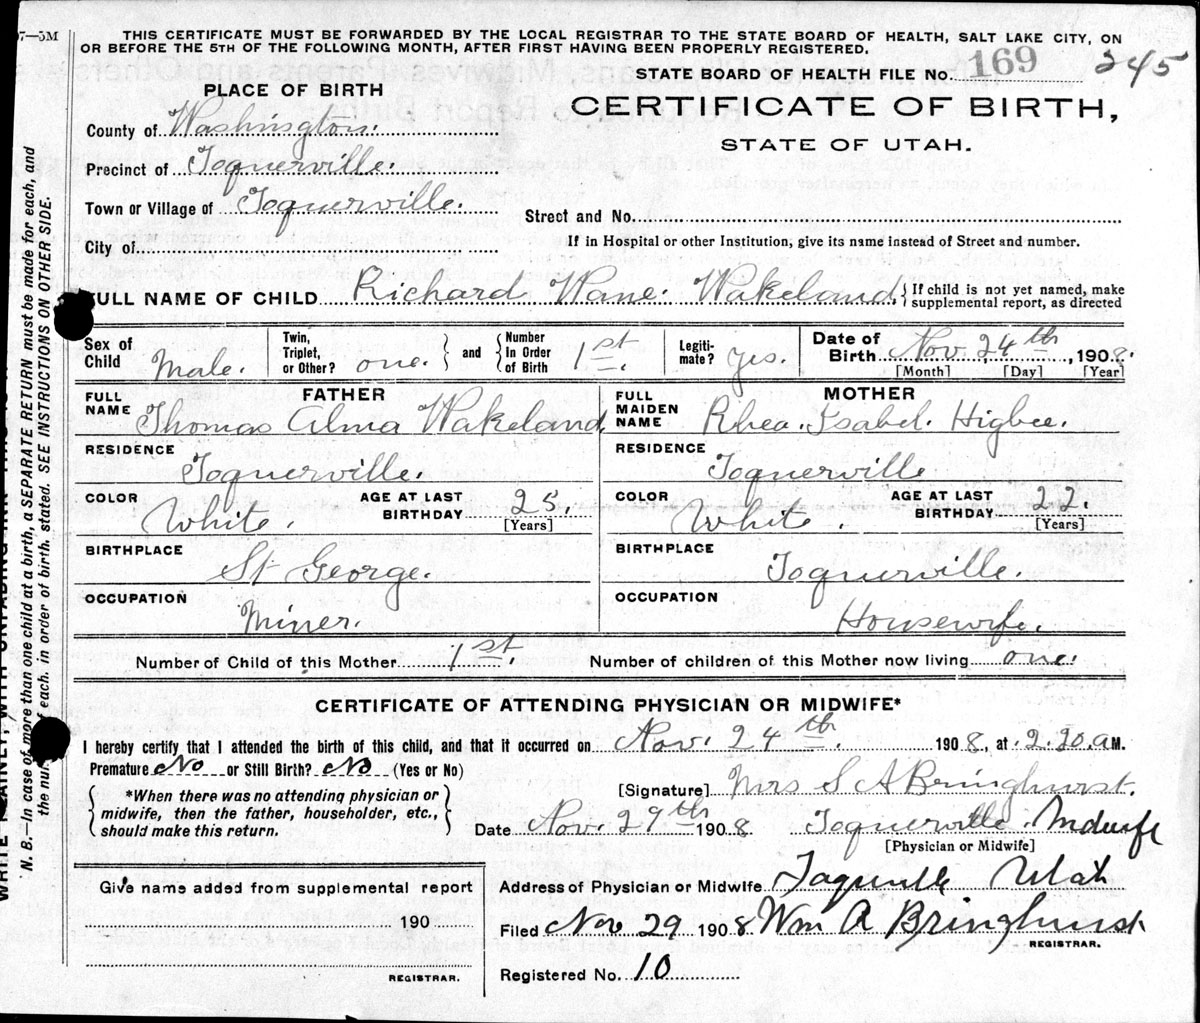 7—5M
THIS CERTIFICATE MUST BE FORWARDED BY THE LOCAL REGISTRAR TO THE STATE BOARD OF HEALTH, SALT LAKE CITY, ON
OR BEFORE THE 5TH OF THE FOLLOWING MONTH, AFTER FIRST HAVING BEEN PROPERLY REGISTERED.
STATE BOARD OF HEALTH FILE NO. 169 245
PLACE OF BIRTH
CERTIFICATE OF BIRTH,
STATE OF UTAH.
County of Washington.
Precinct of Toquerville.
Town or Village of Toquerville.
Street and No.
City of
If in Hospital or other Institution, give its name instead of Street and number.
FULL NAME OF CHILD Richard Wane. Wakeland. { If child is not yet named, make
supplemental report, as directed
Sex of Child Male. Twin, Triplet, or Other? one. } and { Number In Order of Birth 1st. Legiti-mate? yes. Date of Birth Nov. 24th, 1908.
[Month] [Day] [Year]
FATHER
FULL NAME Thomas Alma Wakeland.
RESIDENCE Toquerville.
COLOR White. AGE AT LAST BIRTHDAY 25. [Years]
BIRTHPLACE St George.
OCCUPATION Miner.
MOTHER
FULL MAIDEN NAME Rhea. Isabel. Higbee.
RESIDENCE Toquerville
COLOR White. AGE AT LAST BIRTHDAY 22. [Years]
BIRTHPLACE Toquerville.
OCCUPATION Housewife.
Number of Child of this Mother 1st. Number of children of this Mother now living one.
CERTIFICATE OF ATTENDING PHYSICIAN OR MIDWIFE*
I hereby certify that I attended the birth of this child, and that it occurred on Nov. 24th. 1908, at 2.30. A M.
Premature No or Still Birth? No (Yes or No)
[Signature] Mrs S A Bringhurst.
{ *When there was no attending physician or
midwife, then the father, householder, etc.,
should make this return. }
Date Nov. 29th 1908. Toquerville. Midwife
[Physician or Midwife]
Give name added from supplemental report
190
REGISTRAR.
Address of Physician or Midwife Toquerville Utah
Filed Nov 29 1908 Wm A Bringhurst
REGISTRAR.
Registered No. 10
N. B.—In case of more than one child at a birth, a SEPARATE RETURN must be made for each, and
the number of each, in order of birth, stated. SEE INSTRUCTIONS ON OTHER SIDE.